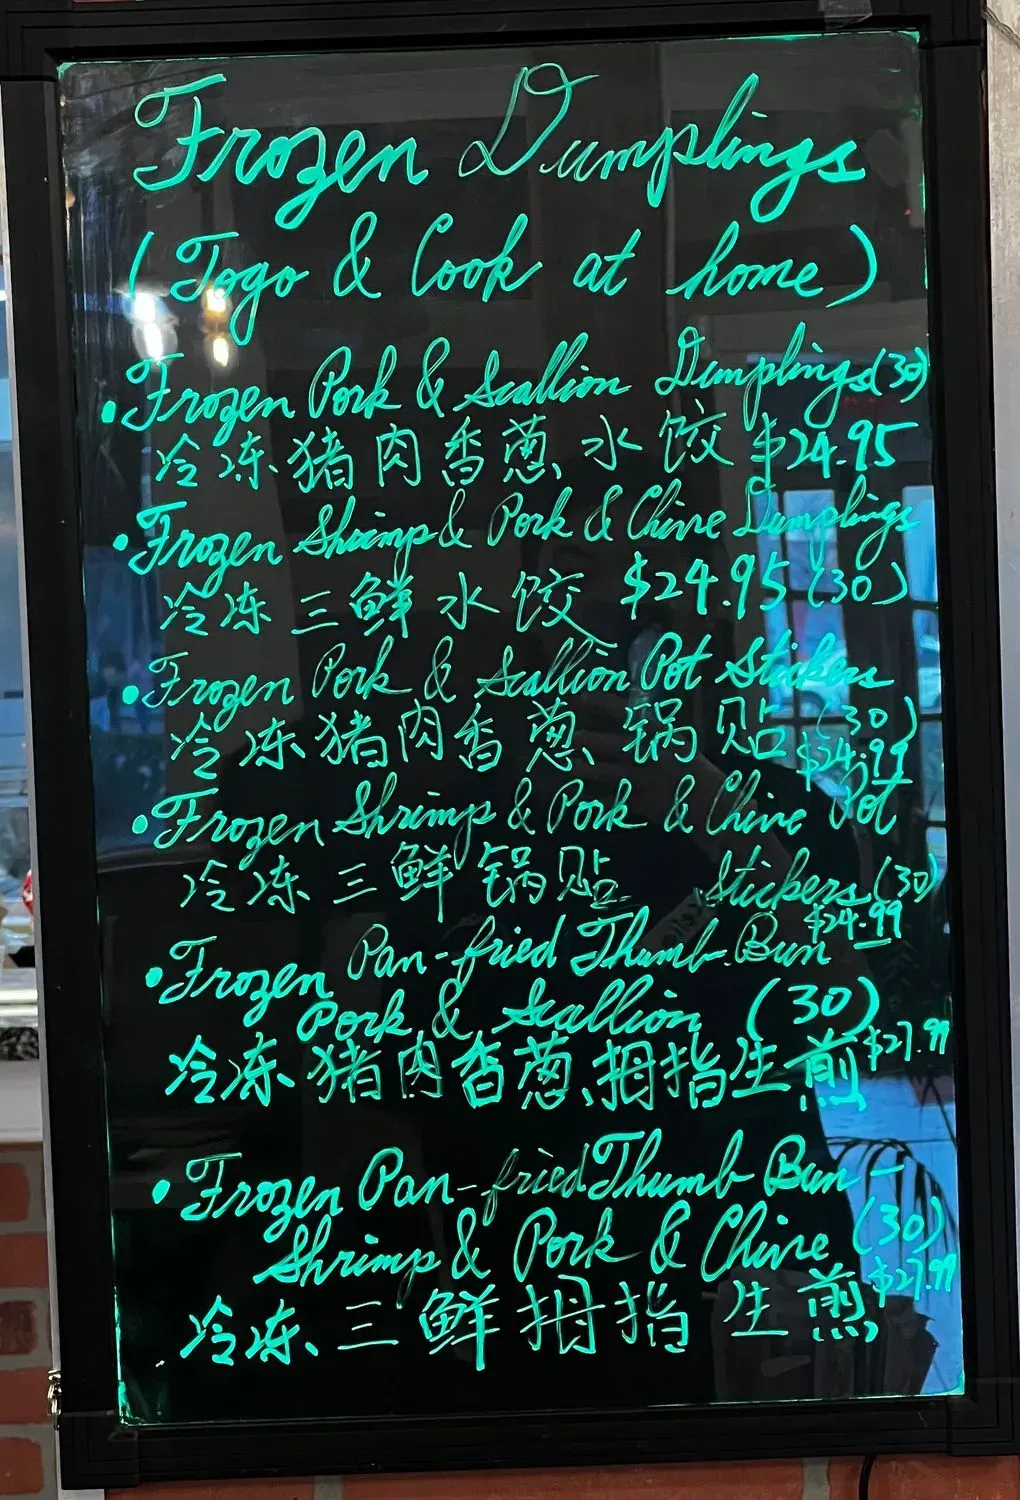 Frozen Dumplings
(Togo & Cook at home)
• Frozen Pork & Scallion Dumplings (30)
冷冻猪肉香葱水饺 $24.95
• Frozen Shrimp & Pork & Chive Dumplings
冷冻三鲜水饺 $24.95 (30)
• Frozen Pork & Scallion Pot Stickers
冷冻猪肉香葱锅贴 (30)
$24.99
• Frozen Shrimp & Pork & Chive Pot
冷冻三鲜锅贴 Stickers (30)
$24.99
• Frozen Pan-fried Thumb Bun
Pork & Scallion (30)
冷冻猪肉香葱拇指生煎 $27.99
• Frozen Pan-fried Thumb Bun -
Shrimp & Pork & Chive (30)
冷冻三鲜拇指生煎 $27.99